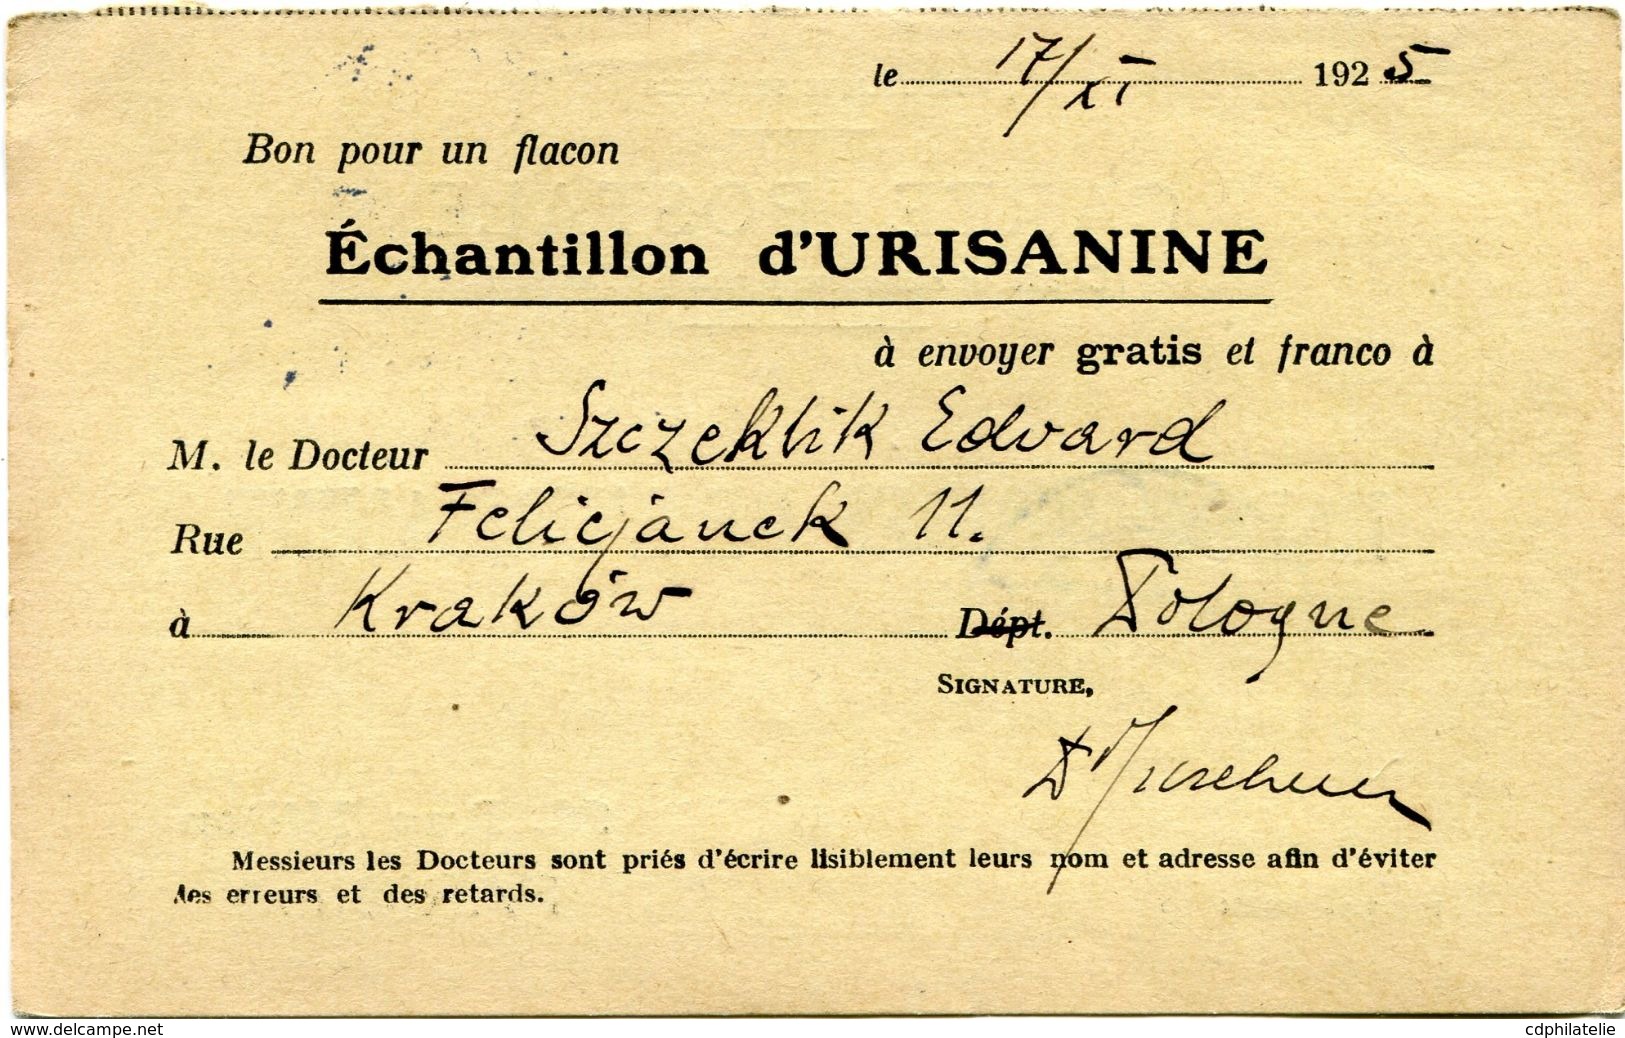 le 17/XI 1925
Bon pour un flacon
Échantillon d'URISANINE
à envoyer gratis et franco à
M. le Docteur Szczeklik Edward
Rue Felicjanek 11.
à Kraków Dépt. Pologne
SIGNATURE,
Messieurs les Docteurs sont priés d'écrire lisiblement leurs nom et adresse afin d'éviter
des erreurs et des retards.
www.delcampe.net
cdphilatelie